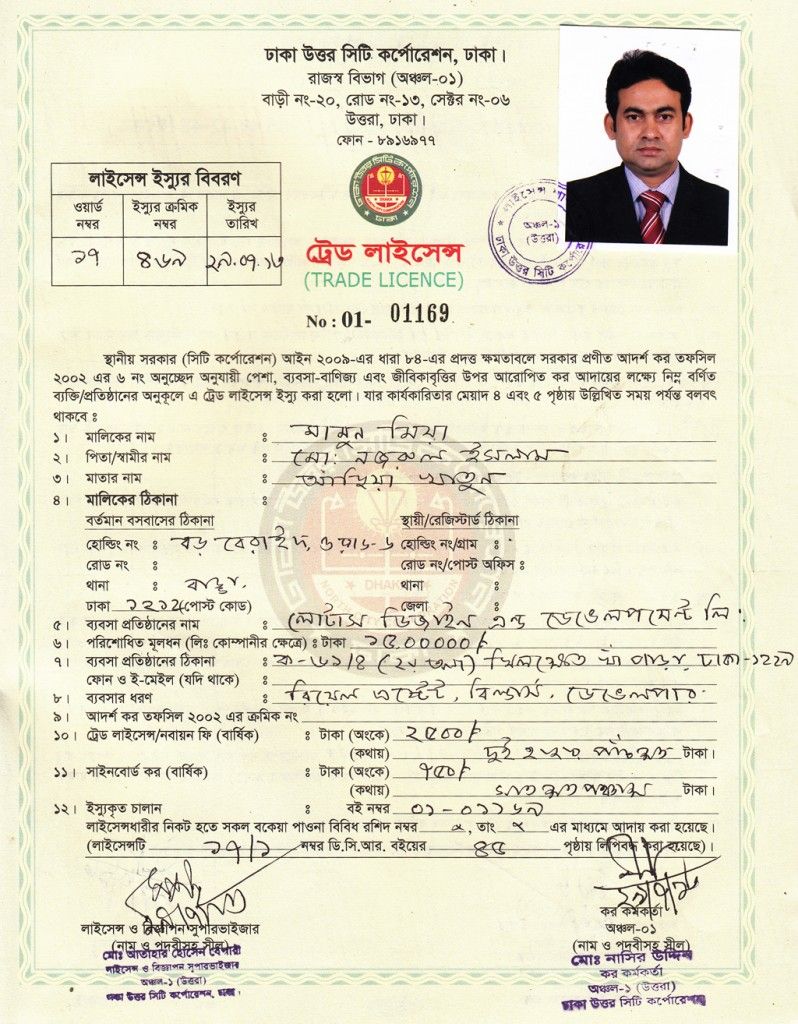 ঢাকা উত্তর সিটি কর্পোরেশন, ঢাকা।
রাজস্ব বিভাগ (অঞ্চল-০১)
বাড়ী নং-২০, রোড নং-১৩, সেক্টর নং-০৬
উত্তরা, ঢাকা।
ফোন - ৮৯১৬৯৭৭
লাইসেন্স ইস্যুর বিবরণ
ওয়ার্ড নম্বর ইস্যুর ক্রমিক নম্বর ইস্যুর তারিখ
১৭ ৪৬৯ ২৯.০৭.১৩
DHAKA
অঞ্চল-১
(উত্তরা)
ঢাকা উত্তর সিটি
ট্রেড লাইসেন্স
(TRADE LICENCE)
No : 01- 01169
স্থানীয় সরকার (সিটি কর্পোরেশন) আইন ২০০৯-এর ধারা ৮৪-এর প্রদত্ত ক্ষমতাবলে সরকার প্রণীত আদর্শ কর তফসিল
২০০২ এর ৬ নং অনুচ্ছেদ অনুযায়ী পেশা, ব্যবসা-বাণিজ্য এবং জীবিকাবৃত্তির উপর আরোপিত কর আদায়ের লক্ষ্যে নিম্ন বর্ণিত
ব্যক্তি/প্রতিষ্ঠানের অনুকূলে এ ট্রেড লাইসেন্স ইস্যু করা হলো। যার কার্যকারিতার মেয়াদ ৪ এবং ৫ পৃষ্ঠায় উল্লিখিত সময় পর্যন্ত বলবৎ
থাকবে ঃ
১। মালিকের নাম ঃ মামুন মিয়া
২। পিতা/স্বামীর নাম ঃ মো: নজরুল ইসলাম
৩। মাতার নাম ঃ খাতুন
৪। মালিকের ঠিকানা ঃ
বর্তমান বসবাসের ঠিকানা স্থায়ী/রেজিস্টার্ড ঠিকানা
হোল্ডিং নং ঃ বড় বেরাইদ, ওয়ার্ড-৬ হোল্ডিং নং/গ্রাম ঃ
রোড নং ঃ রোড নং/পোস্ট অফিস ঃ
থানা ঃ বাড্ডা. থানা ঃ
ঢাকা ১২১২ (পোস্ট কোড) জেলা ঃ
৫। ব্যবসা প্রতিষ্ঠানের নাম ঃ লোটাস ডিজাইন এন্ড ডেভেলপমেন্ট লি:
৬। পরিশোধিত মূলধন (লিঃ কোম্পানীর ক্ষেত্রে) ঃ টাকা ১৫,০০০০০/-
৭। ব্যবসা প্রতিষ্ঠানের ঠিকানা ঃ ক-৬১/৪ (২য় তলা) খিলক্ষেত খাঁ পাড়া, ঢাকা-১২২৯
ফোন ও ই-মেইল (যদি থাকে)
৮। ব্যবসার ধরণ ঃ রিয়েল এস্টেট, বিল্ডার্স, ডেভেলপার.
৯। আদর্শ কর তফসিল ২০০২ এর ক্রমিক নং
১০। ট্রেড লাইসেন্স/নবায়ন ফি (বার্ষিক) ঃ টাকা (অংকে) ২৫০০/-
(কথায়) দুই হাজার পাঁচশত টাকা।
১১। সাইনবোর্ড কর (বার্ষিক) ঃ টাকা (অংকে) ৭৫০/-
(কথায়) সাত শত পঞ্চাশ টাকা।
১২। ইস্যুকৃত চালান ঃ বই নম্বর ০১-০১১৬৯
লাইসেন্সধারীর নিকট হতে সকল বকেয়া পাওনা বিবিধ রশিদ নম্বর , তাং এর মাধ্যমে আদায় করা হয়েছে।
(লাইসেন্সটি ১৭/১ নম্বর ডি.সি.আর. বইয়ের ৪৫ পৃষ্ঠায় লিপিবদ্ধ করা হয়েছে)।
লাইসেন্স ও বিজ্ঞাপন সুপারভাইজার
(নাম ও পদবীসহ সীল)
মোঃ আতাহার হোসেন বেপারী
লাইসেন্স ও বিজ্ঞাপন সুপারভাইজার
অঞ্চল-১ (উত্তরা)
ঢাকা উত্তর সিটি কর্পোরেশন, ঢাকা.
কর কর্মকর্তা
অঞ্চল-০১
(নাম ও পদবীসহ সীল)
মোঃ নাসির উদ্দিন
কর কর্মকর্তা
অঞ্চল-১ (উত্তরা)
ঢাকা উত্তর সিটি কর্পোরেশন